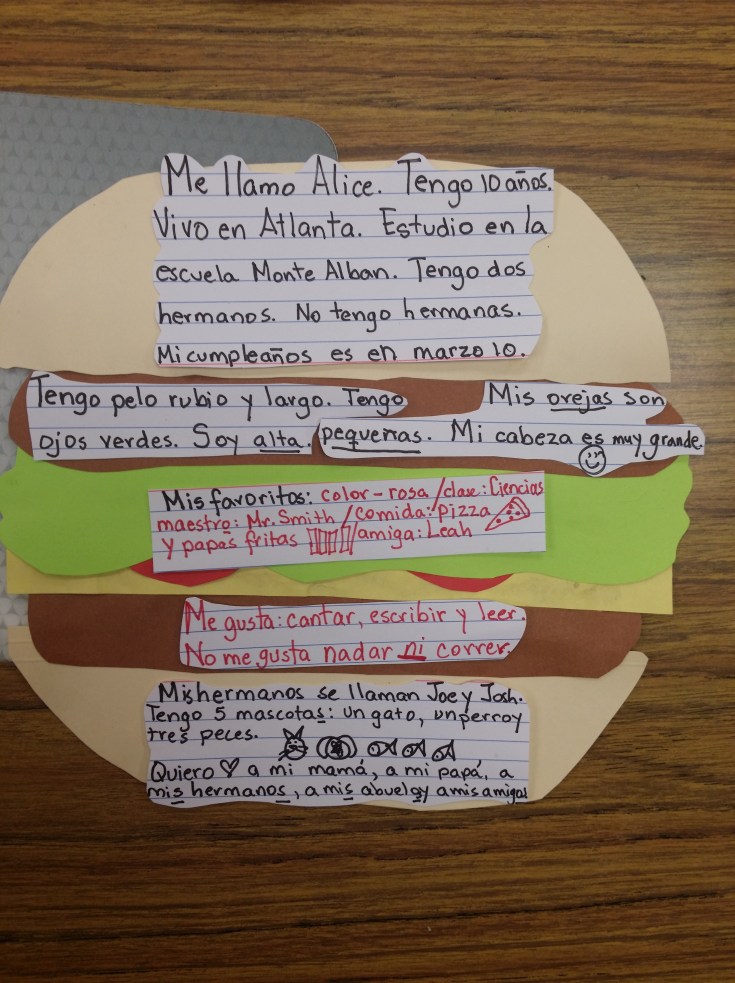 Me llamo Alice. Tengo 10 años.
Vivo en Atlanta. Estudio en la
escuela Monte Alban. Tengo dos
hermanos. No tengo hermanas.
Mi cumpleaños es en marzo 10.
Tengo pelo rubio y largo. Tengo
ojos verdes. Soy alta.
Mis orejas son
pequeñas. Mi cabeza es muy grande.
Mis favoritos: color-rosa/clase: Ciencias
maestro: Mr. Smith/comida: pizza
y papas fritas /amiga: Leah
Me gusta: cantar, escribir y leer.
No me gusta nadar ni correr.
Mis hermanos se llaman Joe y Josh.
Tengo 5 mascotas: un gato, un perro y
tres peces.
Quiero ♡ a mi mamá, a mi papá, a
mis hermanos, a mis abuelos y a mis amigas